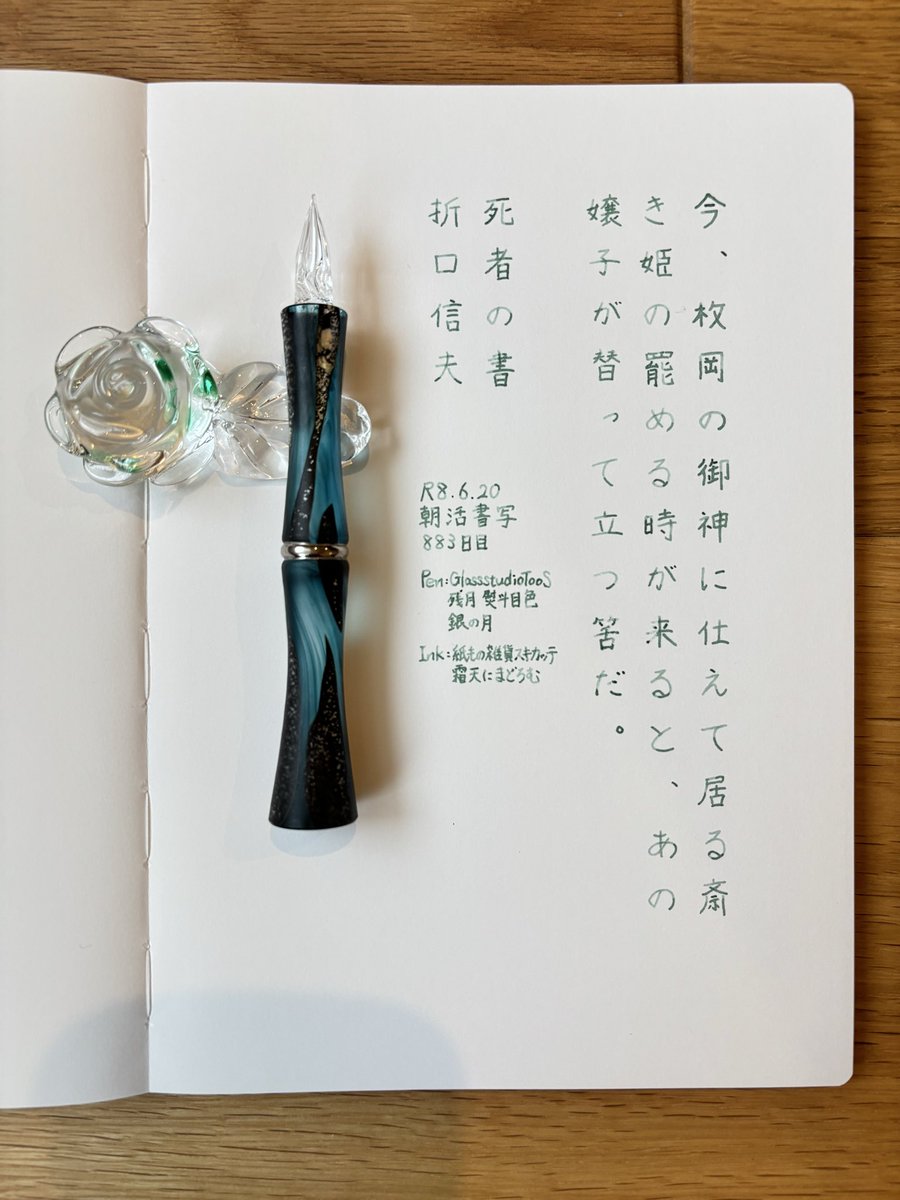 今、枚岡の御神に仕えて居る斎
き姫の罷める時が来ると、あの
嬢子が替って立つ筈だ。
死者の書
折口信夫
R8.6.20
朝活書写
883日目
Pen:GlassstudioTooS
残月 熨斗目色
銀の月
Ink:紙もの雑貨スキカッテ
霜天にまどろむ